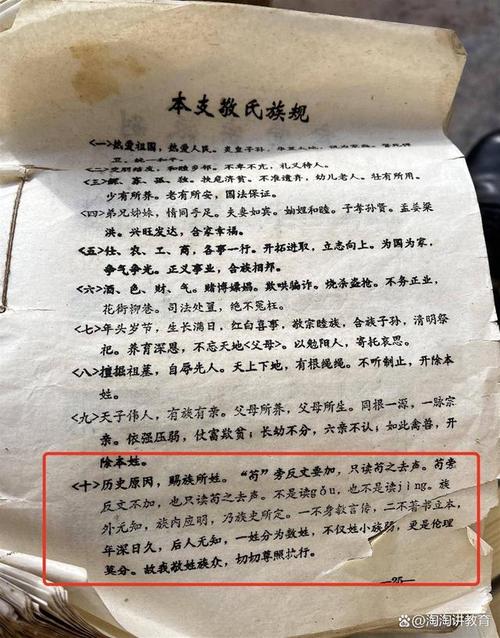 本支敬氏族规
<一>热爱祖国，热爱人民。炎皇子孙，
卫，统一和平。
和睦乡邻。不卑不亢，礼义待人。
<三>鳏、寡、孤、独。扶危济贫。不准遗弃，幼儿老人。壮有所用。
少有所养。老有所安，国法保证。
<四>弟兄姊妹，情同手足。夫妻如宾。妯娌和睦。子孝孙贤。孟姜梁
洪。兴旺发达，合家幸福。
<五>仕、农、工、商，各事一行。开拓进取，立志向上。为国为家，
争气争光。正义事业，合族相邦。
<六>酒、色、财、气。赌博嫖娼。欺哄骗诈。烧杀盗抢。不务正业，
花街柳巷。司法处置，绝不冤枉。
<七>年头岁节，生长满日，红白喜事，敬宗睦族，合族子孙，清明祭
祀。养育深恩，不忘天地<父母>。以勉阳人，寄托哀思。
<八>擅掘祖墓，自辱先人。天上下地，有根绳绳。不听制止，开除本
姓。
<九>天子伟人，有族有亲。父母所养，父母所生。同根一源，一脉宗
亲。依强压弱，仗富欺贫；长幼不分，六亲不认；如此禽兽，开
除本姓。
<十>历史原因，赐族所姓。“苟”旁反文要加，只读苟之去声。苟旁
反文不加，也只读苟之去声。不是读gǒu，也不是读jìng。族
外无知，族内应明，乃族史所定。一不身教言传，二不著书立本，
年深日久，后人无知，一姓分为数姓，不仅姓小族弱，更是伦理
莫分。故我敬姓族众，切切尊照执行。
—25—
淘淘讲教育